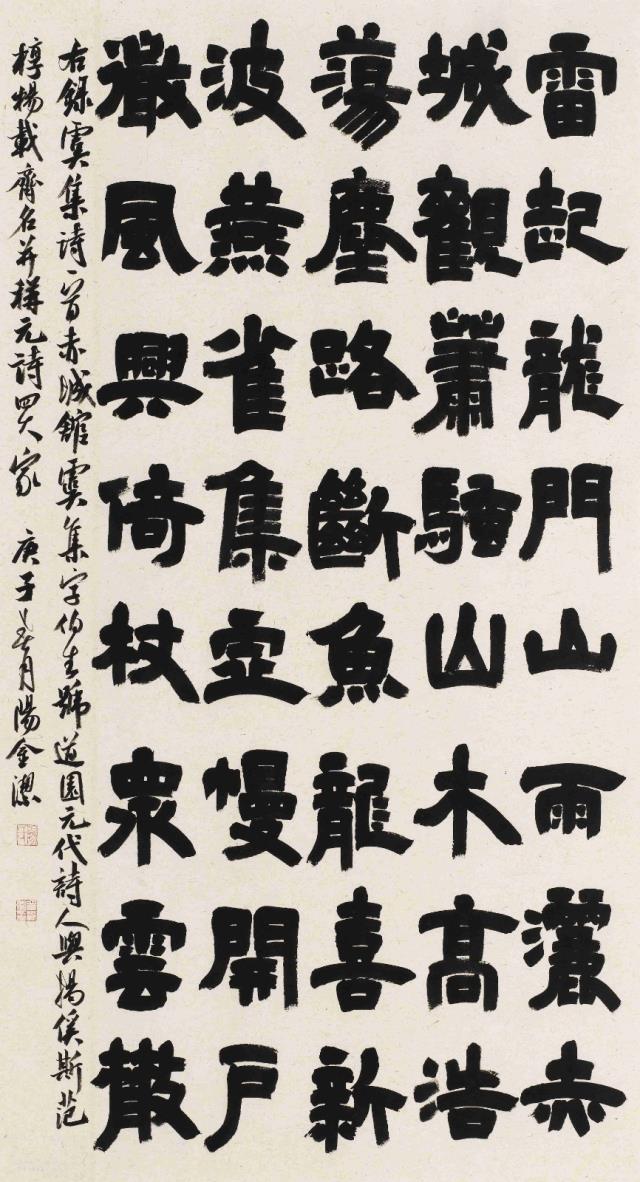 雷起龍門山雨灑赤
城觀蕭騷山木高浩
蕩塵路斷魚龍喜新
波燕雀集虛幔開戶
微風興倚杖衆雲散
右錄虞集詩一首赤城館虞集字伯生號道園元代詩人與揭傒斯范
梈楊載齊名并稱元詩四大家 庚子春月陽金潔